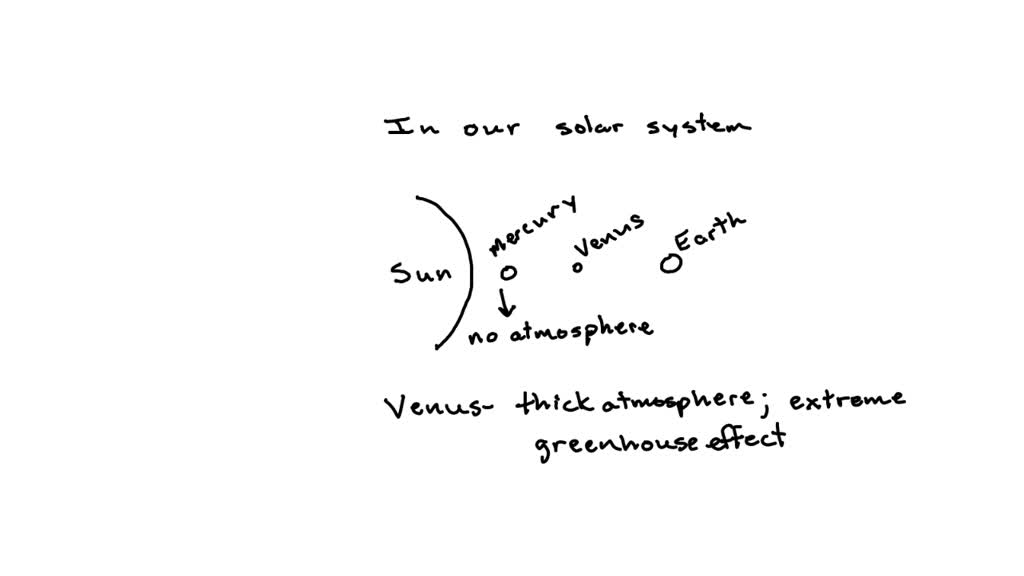 In our solar system
Mercury
Venus
Earth
Sun
no atmosphere
Venus- thick atmosphere; extreme
greenhouse effect